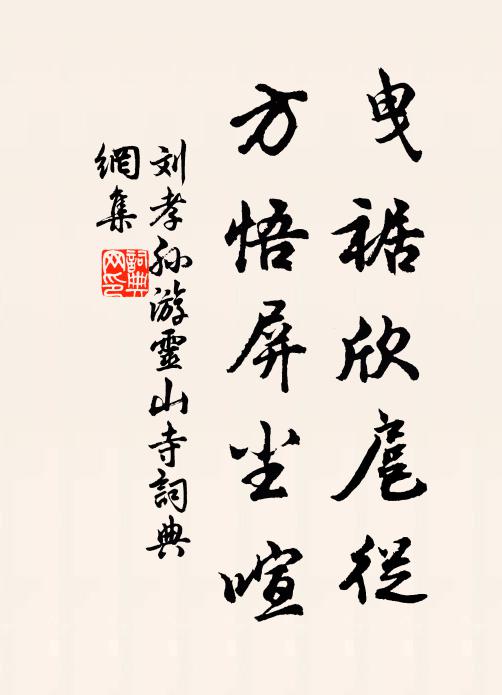 曳裾欣扈從
方悟屏尘喧
刘孝孙游靈山寺詞典
網集
詞典網印